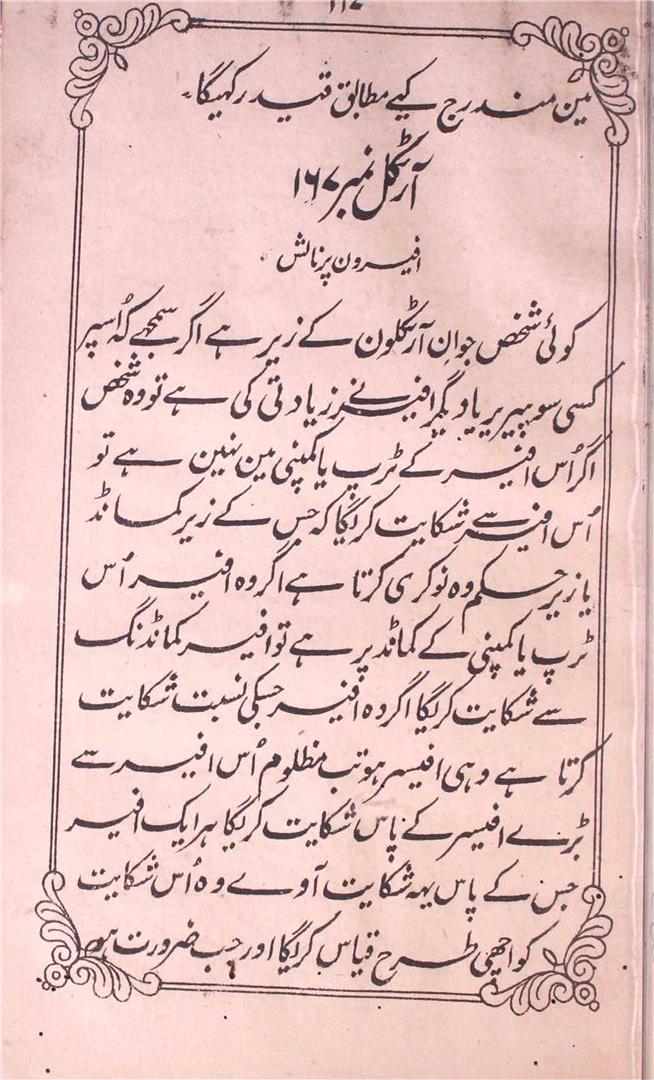 ۱۱۷
مین مندرج کیے مطابق قید رکھیگا۔
آرٹکل نمبر ۱۶۷
افیسرون پر نالش
کوئی شخص جو ان آرٹکلون کے زیر ہے اگر سمجھے کہ اُسپر
کسی سوپیریر یا دیگر افیسر نے زیادتی کی ہے تو وہ شخص
اگر اُس افیسر کے ٹرپ یا کمپنی مین نہین ہے تو
اُس افیسر سے شکایت کریگا کہ جس کے زیر کمانڈ
یا زیر حکم وہ نوکری کرتا ہے اگر وہ افیسر اُس
ٹرپ یا کمپنی کے کمانڈ پر ہے تو افیسر کمانڈنگ
سے شکایت کریگا اگر وہ افیسر جسکی نسبت شکایت
کرتا ہے وہی افیسر ہو تب مظلوم اُس افیسر سے
بڑے افیسر کے پاس شکایت کریگا ہر ایک افیسر
جس کے پاس یہہ شکایت آوے وہ اُس شکایت
کو اچھی طرح قیاس کریگا اور جب ضرورت ہو